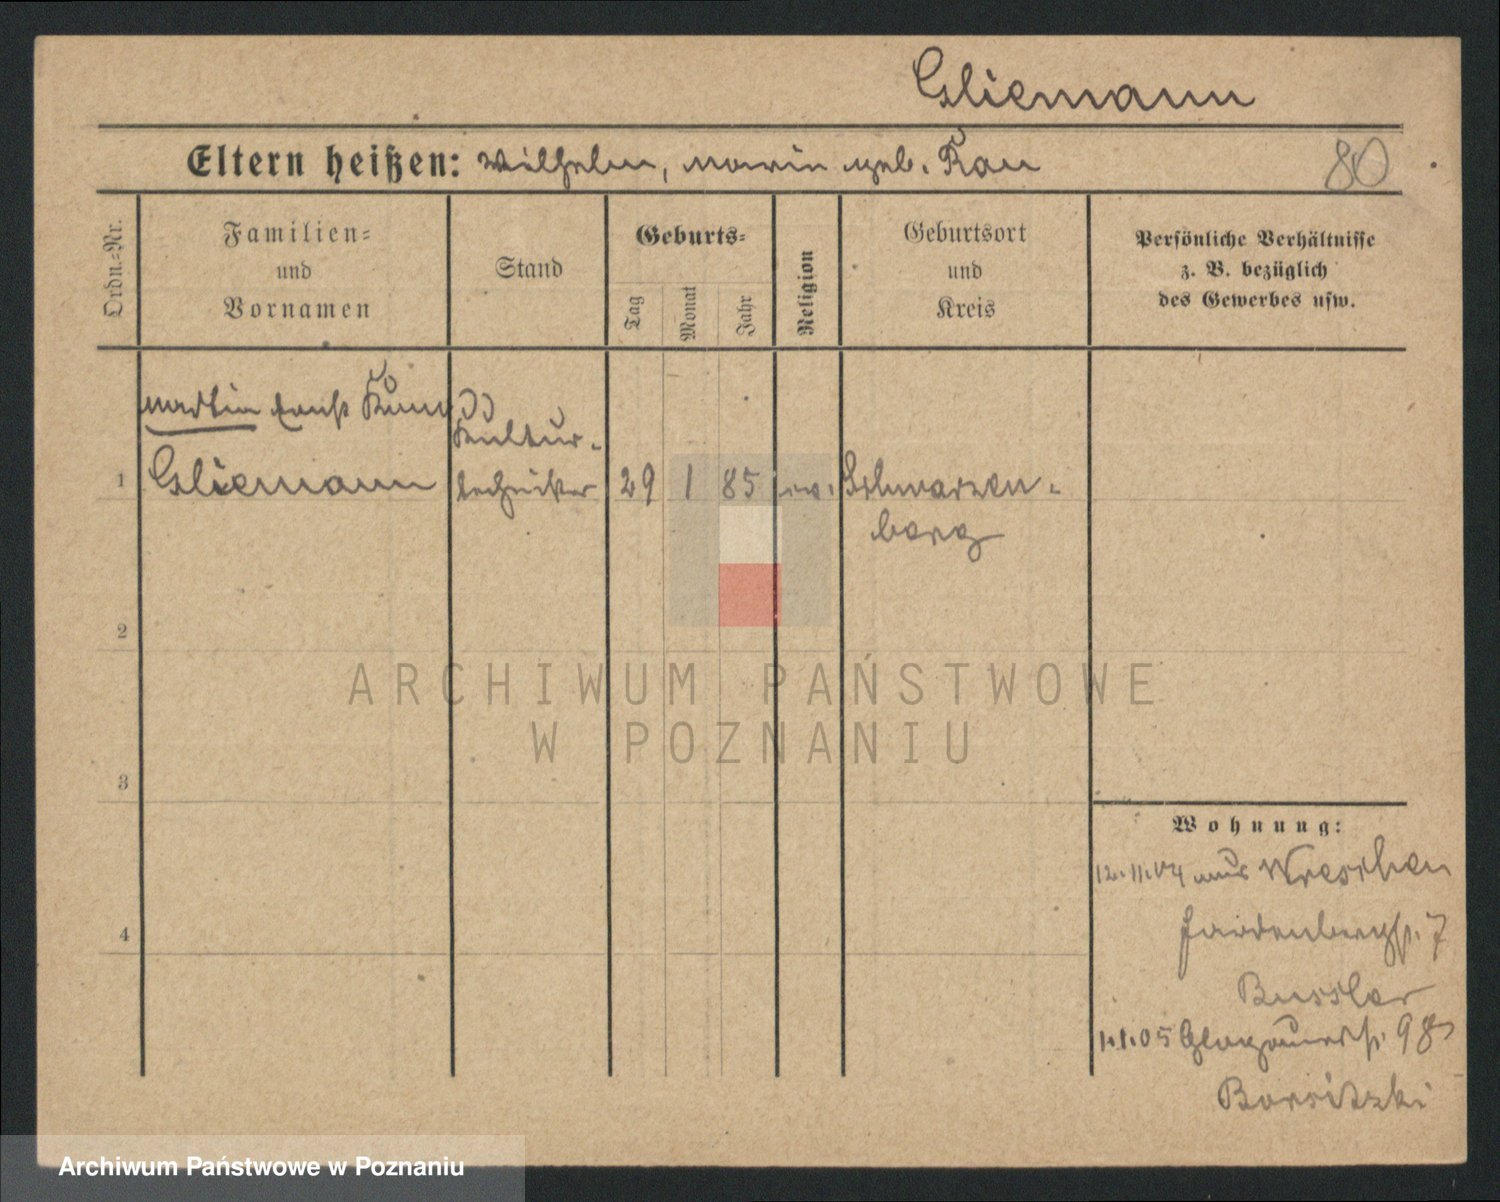 Gliemann
Eltern heißen: Wilhelm, Marie geb. Rau
80
Ordn.-Nr.
Familien-
und
Vornamen
Stand
Geburts-
Tag
Monat
Jahr
Religion
Geburtsort
und
Kreis
Persönliche Verhältnisse
z. B. bezüglich
des Gewerbes usw.
Martin Ernst
Kultur-
1 Gliemann techniker 29 1 85 ev. Schwarzen-
berg
2
3
4
Wohnung:
12.11.04 aus Wreschen
Hardenbergstr. 7
Bussler
1.1.05 Glogauerstr. 98
Borsitzki
ARCHIWUM PAŃSTWOWE
W POZNANIU
Archiwum Państwowe w Poznaniu